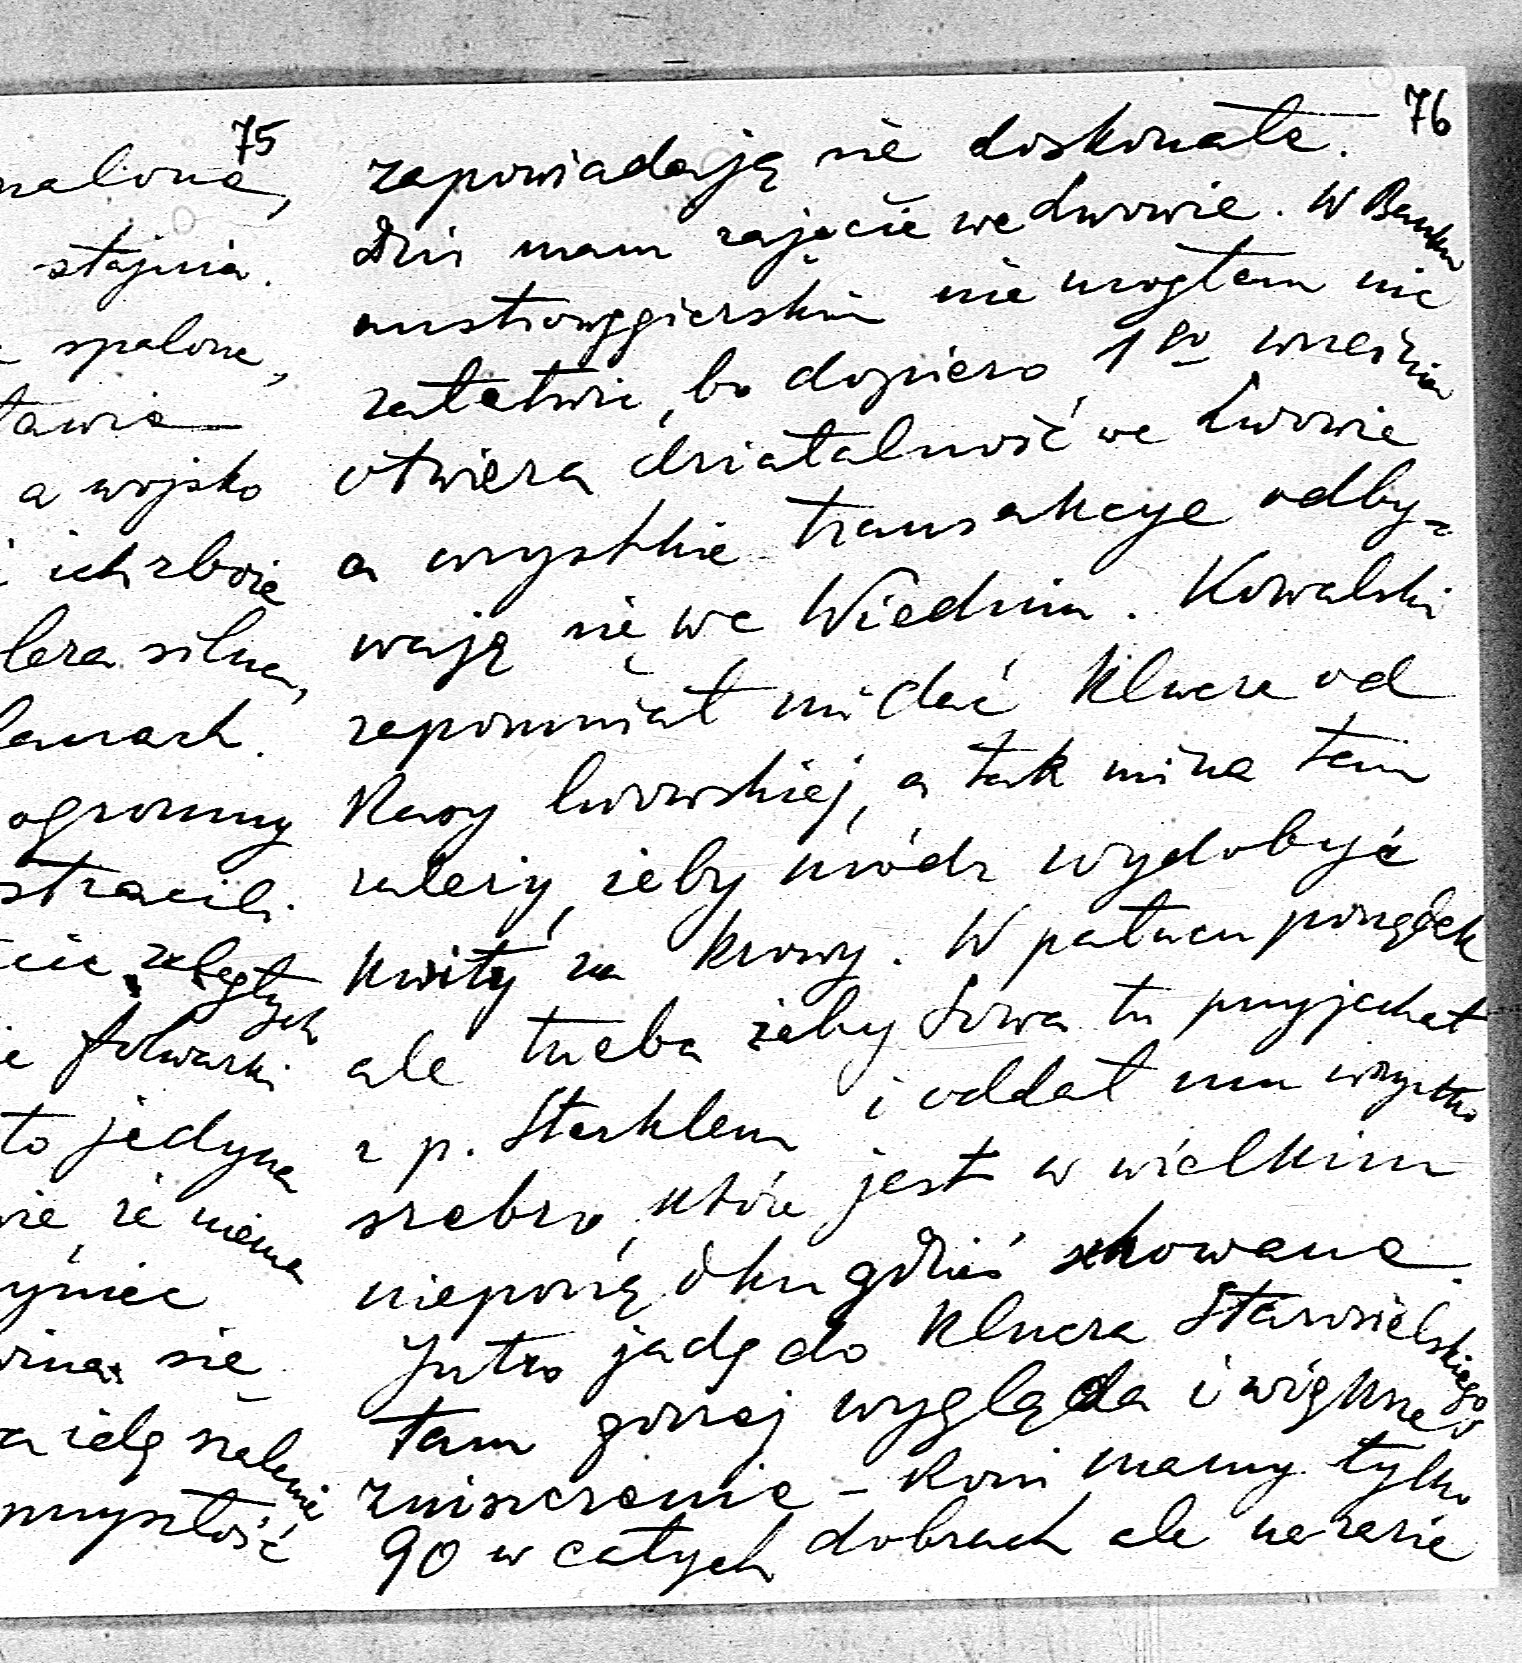 75
nalone,
stajnia.
spalone,
tawie
a wojsko
i ich zboże
lera silna,
lamach.
ogromny
stracili.
cie zaległych
e folwarki
to jedyna
wie, że niema
yniec
wina się
a idę szalenie
przyszłość
76
zapowiadają się doskonale.
Dziś mam zajęcie we Lwowie. W Banku
austrowęgierskim nie mogłem nic
załatwić, bo dopiero 1go września
otwiera działalność we Lwowie
a wszystkie transakcye odby=
wają się we Wiedniu. Kowalski
zapomniał mi dać klucze od
Kasy lwowskiej, a tak mi na tem
zależy, żeby módz wydobyć
kwity za krowy. W pałacu porządek
ale trzeba żeby Sowa tu przyjechał
z p. Starklem i oddał mu wszystko
srebro, które jest w wielkim
nieporządku gdzieś schowane.
Jutro jadę do klucza Starosielskiego
tam gorzej wygląda i większe
zniszczenie – koni mamy tylko
90 w całych dobrach ale na razie